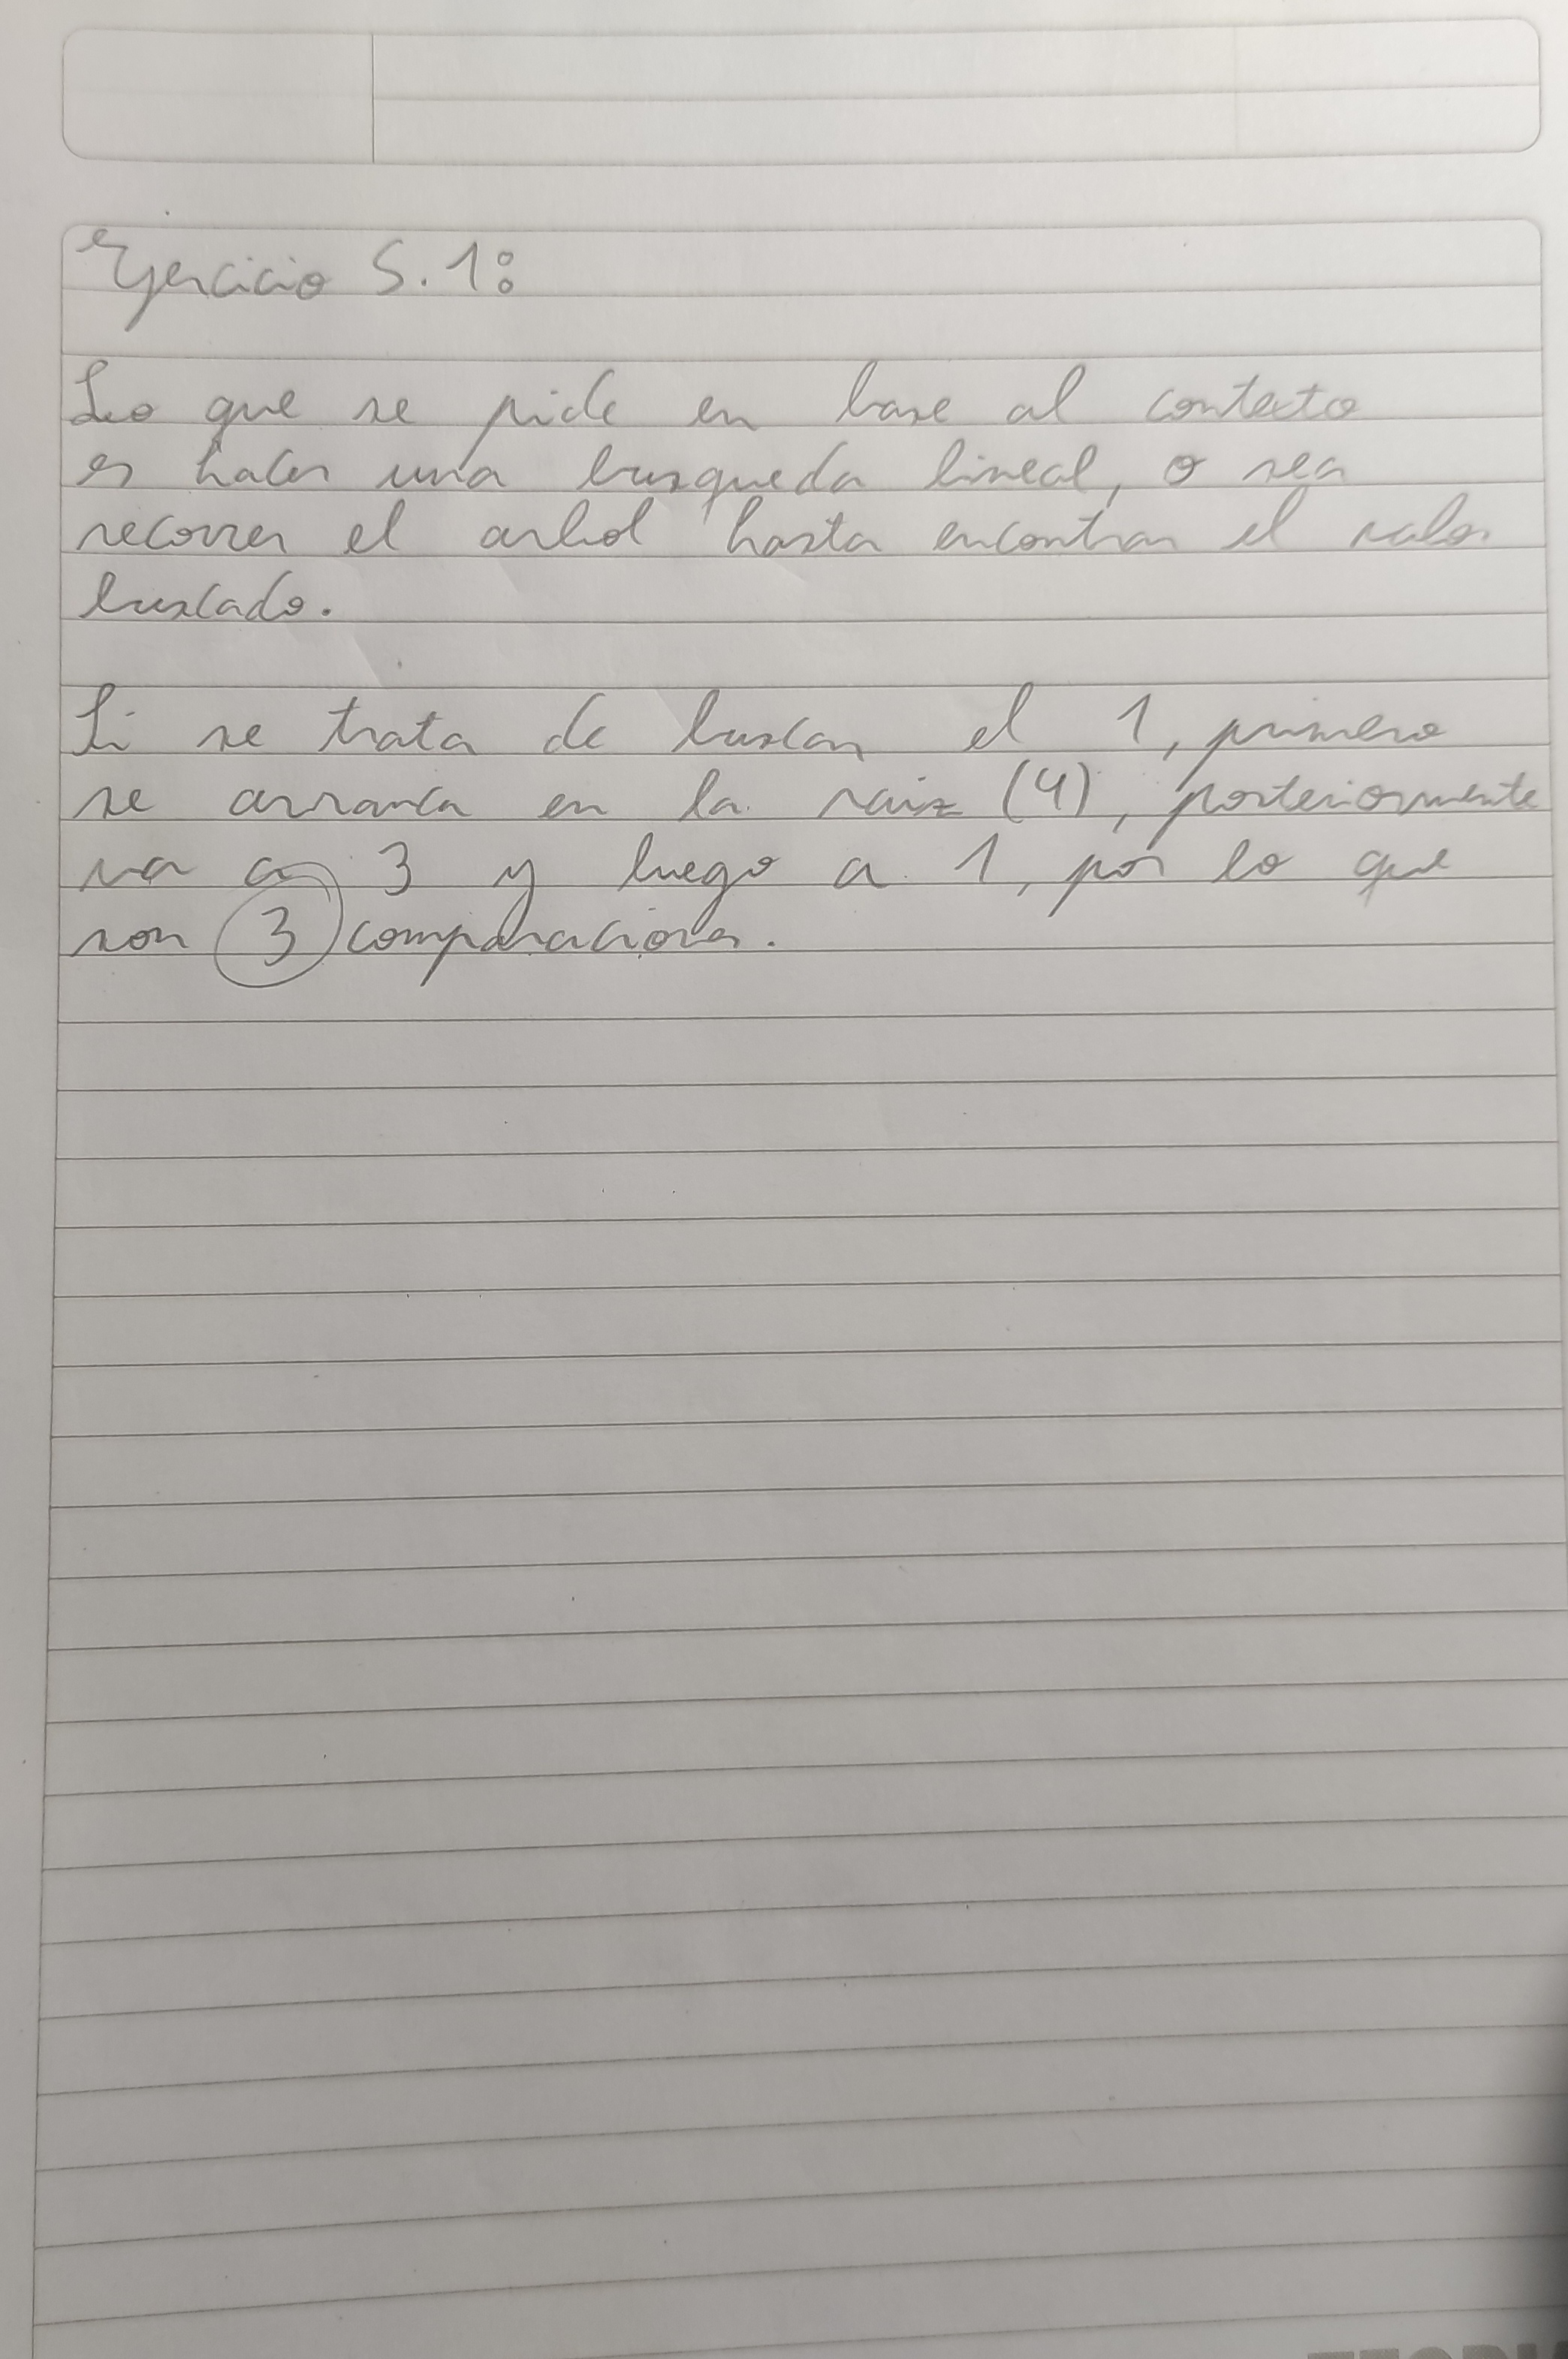 Ejercicio 5.1:
Lo que se pide en base al contexto
es hacer una busqueda lineal, o sea
recorrer el arbol hasta encontrar el valor
buscado.
Si se trata de buscar el 1, primero
se arranca en la raiz (4), posteriormente
va a 3 y luego a 1, por lo que
son 3 comparaciones.